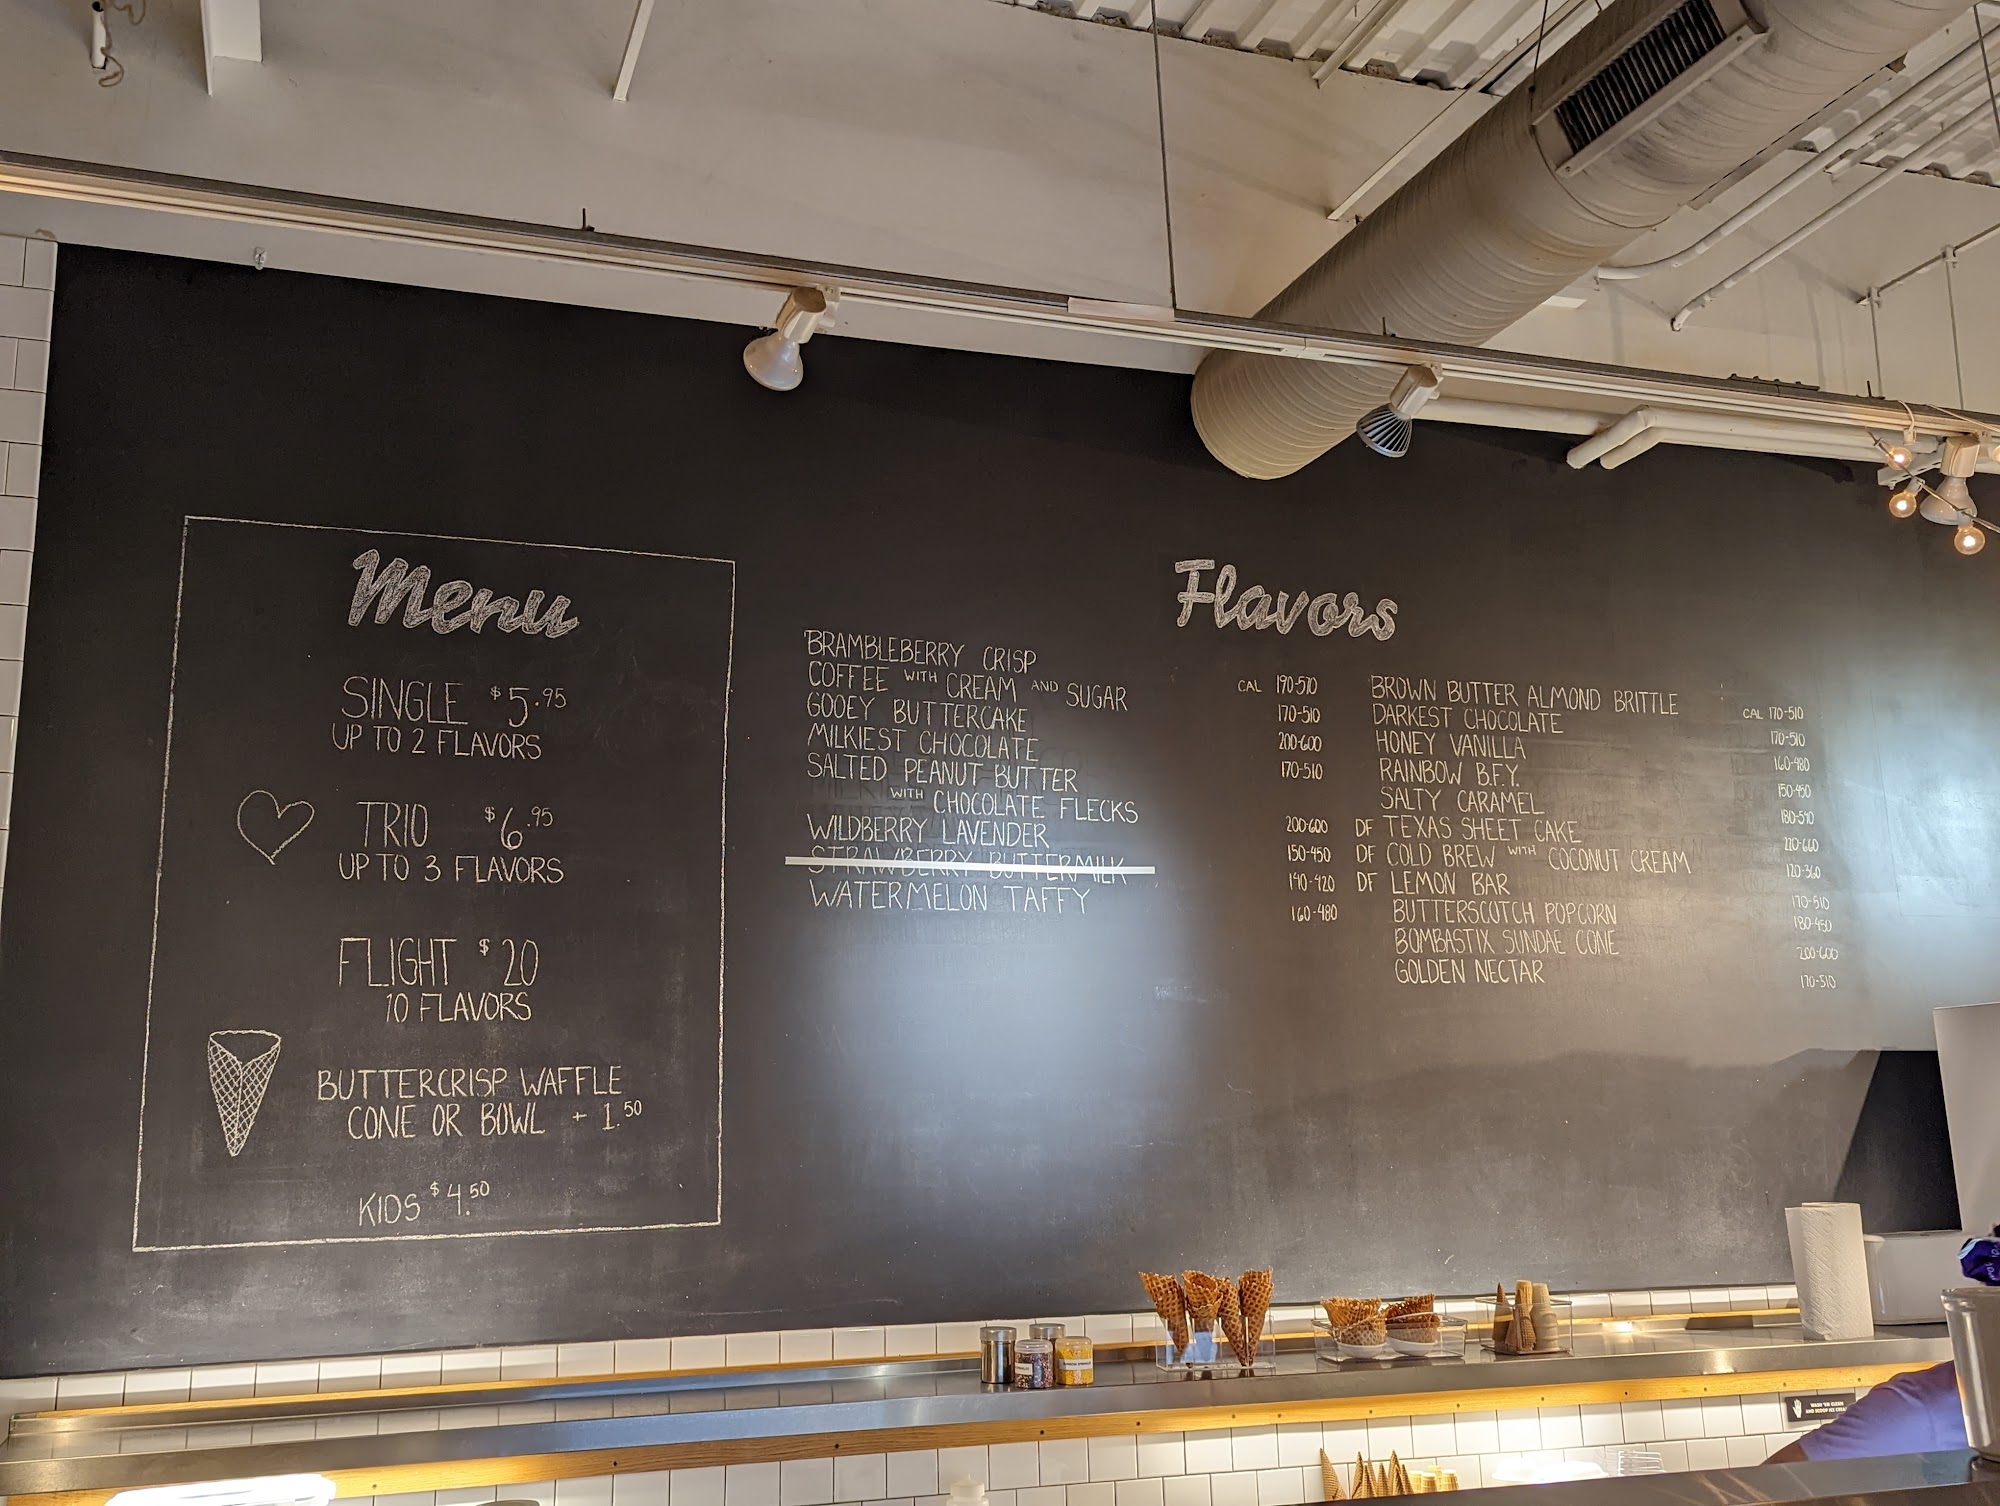 Menu
SINGLE $5.95
UP TO 2 FLAVORS
TRIO $6.95
UP TO 3 FLAVORS
FLIGHT $20
10 FLAVORS
BUTTERCRISP WAFFLE
CONE OR BOWL + 1.50
KIDS $4.50
Flavors
BRAMBLEBERRY CRISP CAL 190-570
COFFEE WITH CREAM AND SUGAR 170-510
GOOEY BUTTERCAKE 200-600
MILKIEST CHOCOLATE 170-510
SALTED PEANUT BUTTER
WITH CHOCOLATE FLECKS 200-600
WILDBERRY LAVENDER 150-450
STRAWBERRY BUTTERMILK 140-420
WATERMELON TAFFY 160-480
BROWN BUTTER ALMOND BRITTLE CAL 170-510
DARKEST CHOCOLATE 170-510
HONEY VANILLA 160-480
RAINBOW B.F.Y. 150-450
SALTY CARAMEL 180-540
DF TEXAS SHEET CAKE 220-660
DF COLD BREW WITH COCONUT CREAM 120-360
DF LEMON BAR 170-510
BUTTERSCOTCH POPCORN 180-450
BOMBASTIX SUNDAE CONE 200-600
GOLDEN NECTAR 170-510
WASH 'EM CLEAN
AND SCOOP ICE